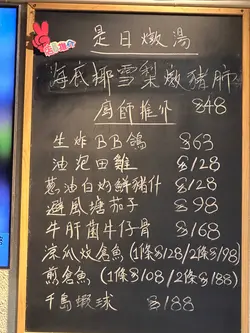 是日燉湯
海底椰雪梨燉豬𦟌
廚師推介 $48
生炸BB鴿 $63
油泡田雞 $128
蔥油白灼鮮豬什 $128
避風塘茄子 $98
牛肝菌牛仔骨 $168
涼瓜炆倉魚 (1條$128/2條$198)
煎倉魚 (1條$108/2條$188)
千島蝦球 $188